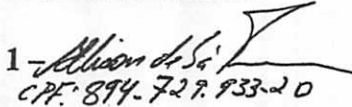 1 - Alison de Sá
CPF: 894-729.933-20